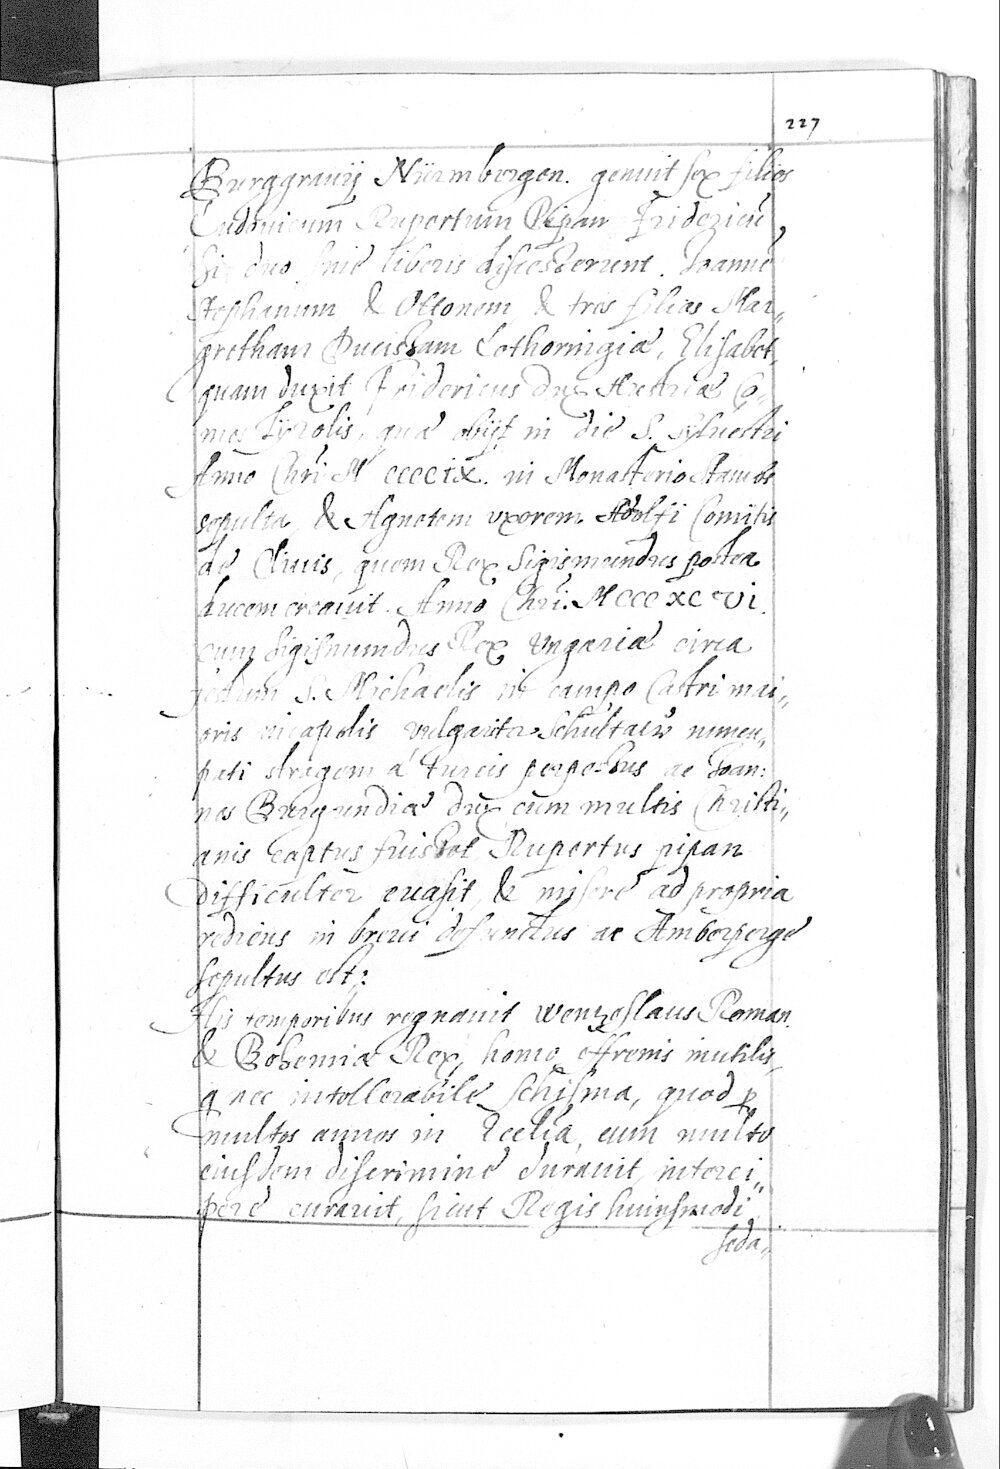 227
Burggravij Nürmbergen. genuit sex filios
Ludovicum Rupertum Pipan Fridericū,
hi duo sine liberis discesserunt. Joannē
Stephanum & Ottonem & tres filias Mar„
gretham Ducissam Lothoringiæ, Elisabet,
quam duxit Fridericus dux Austriæ Co„
mes Tyrolis, quæ obijt in die S. Sylvestri
Anno Chri M CCCCIX. in Monasterio Stambs
sepulta & Agnetem uxorem Adolfi Comitis
de Clivis, quem Rex Sigismundus postea
ducem creavit. Anno Chri. MCCCXCVI.
cum Sigismundus Rex Ungariæ circa
festum S. Michaelis in campo Castri mai„
oris nicapolis vulgariter Schultaw nuncu„
pati stragem á Turcis perpessus ac Joan:
nes Burgundiæ dux cum multis Christi„
anis captus fuisset Rupertus pipan
difficulter evasit, & misere ad propria
rediens in brevi defunctus ac Amberperge
sepultus est:
His temporibus regnavit Wenzeslaus Roman.
& Bohemiæ Rex, homo effrenis inutilis,
q nec intollerabile schisma, quod p
multos annos in Ecclia, cum multo
eiusdem discrimine duravit, interci„
pere curavit, sicut Regis huiusmodi
seda„